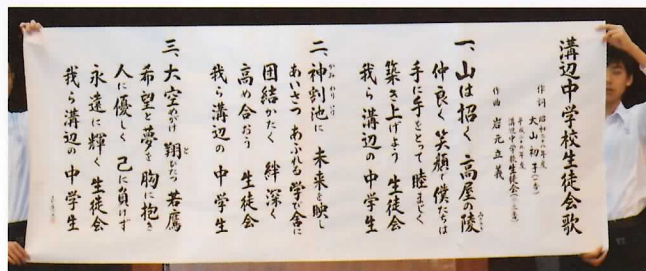 溝辺中学校生徒会歌
作詞
大山初子(一番)
溝辺中学校生徒会(二、三番)
作曲 岩元立義
一、山は招く 高屋の陵
仲良く 笑顔で 僕たちは
手に手をとって 睦まじく
築き上げよう 生徒会
我ら溝辺の 中学生
二、神割池に 未来を映し
あいさつ あふれる 学び舎に
団結かたく 絆深く
高め合おう 生徒会
我ら溝辺の 中学生
三、大空かけ 翔びたつ 若鷹
希望と夢を 胸に抱き
人に優しく 己に負けず
永遠に輝く 生徒会
我ら溝辺の 中学生